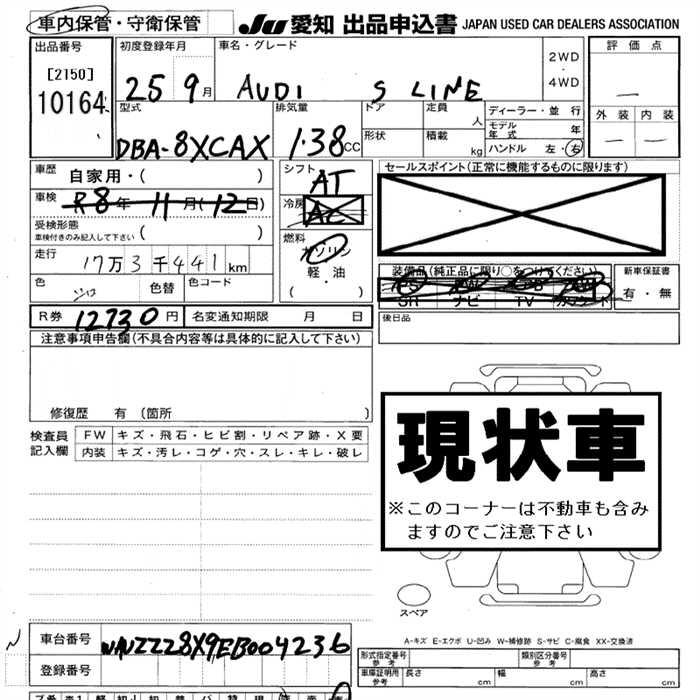 車内保管・守衛保管 JU 愛知 出品申込書 JAPAN USED CAR DEALERS ASSOCIATION
出品番号 初度登録年月 車名・グレード 評価点
[2150] 25 9月 AUDI S LINE 2WD・4WD —
10164 型式 排気量 ドア 定員 人 ディーラー・並行 外装 内装
DBA-8XCAX 1.38cc 形状 積載 kg モデル年式 年 — —
ハンドル 左・右
車歴 自家用・( ) シフト AT セールスポイント(正常に機能するものに限ります)
車検 R8年11月(12日) 冷房 AC
受検形態 ( )
車検付きのみ記入して下さい
燃料 ガソリン
走行 17万3千441km 軽・油
装備品(純正品に限り○をつけてください) 新車保証書
色 シロ 色替 色コード ( ・ )
SR ナビ TV 有・無
R券 12730円 名変通知期限 月 日 後日品
注意事項申告欄(不具合内容等は具体的に記入して下さい)
修復歴 有(箇所 )
検査員 FW キズ・飛石・ヒビ割・リペア跡・X要
記入欄 内装 キズ・汚レ・コゲ・穴・スレ・キレ・破レ
現状車
※このコーナーは不動車も含み
ますのでご注意下さい
スペア
A-キズ E-エクボ U-凹み W-補修跡 S-サビ C-腐食 XX-交換済
車台番号 WAUZZZ8X9EB004236
登録番号
形式指定番号 参考 類別区分番号 参考
車庫証明用 参考 長さ cm 幅 cm 高さ cm